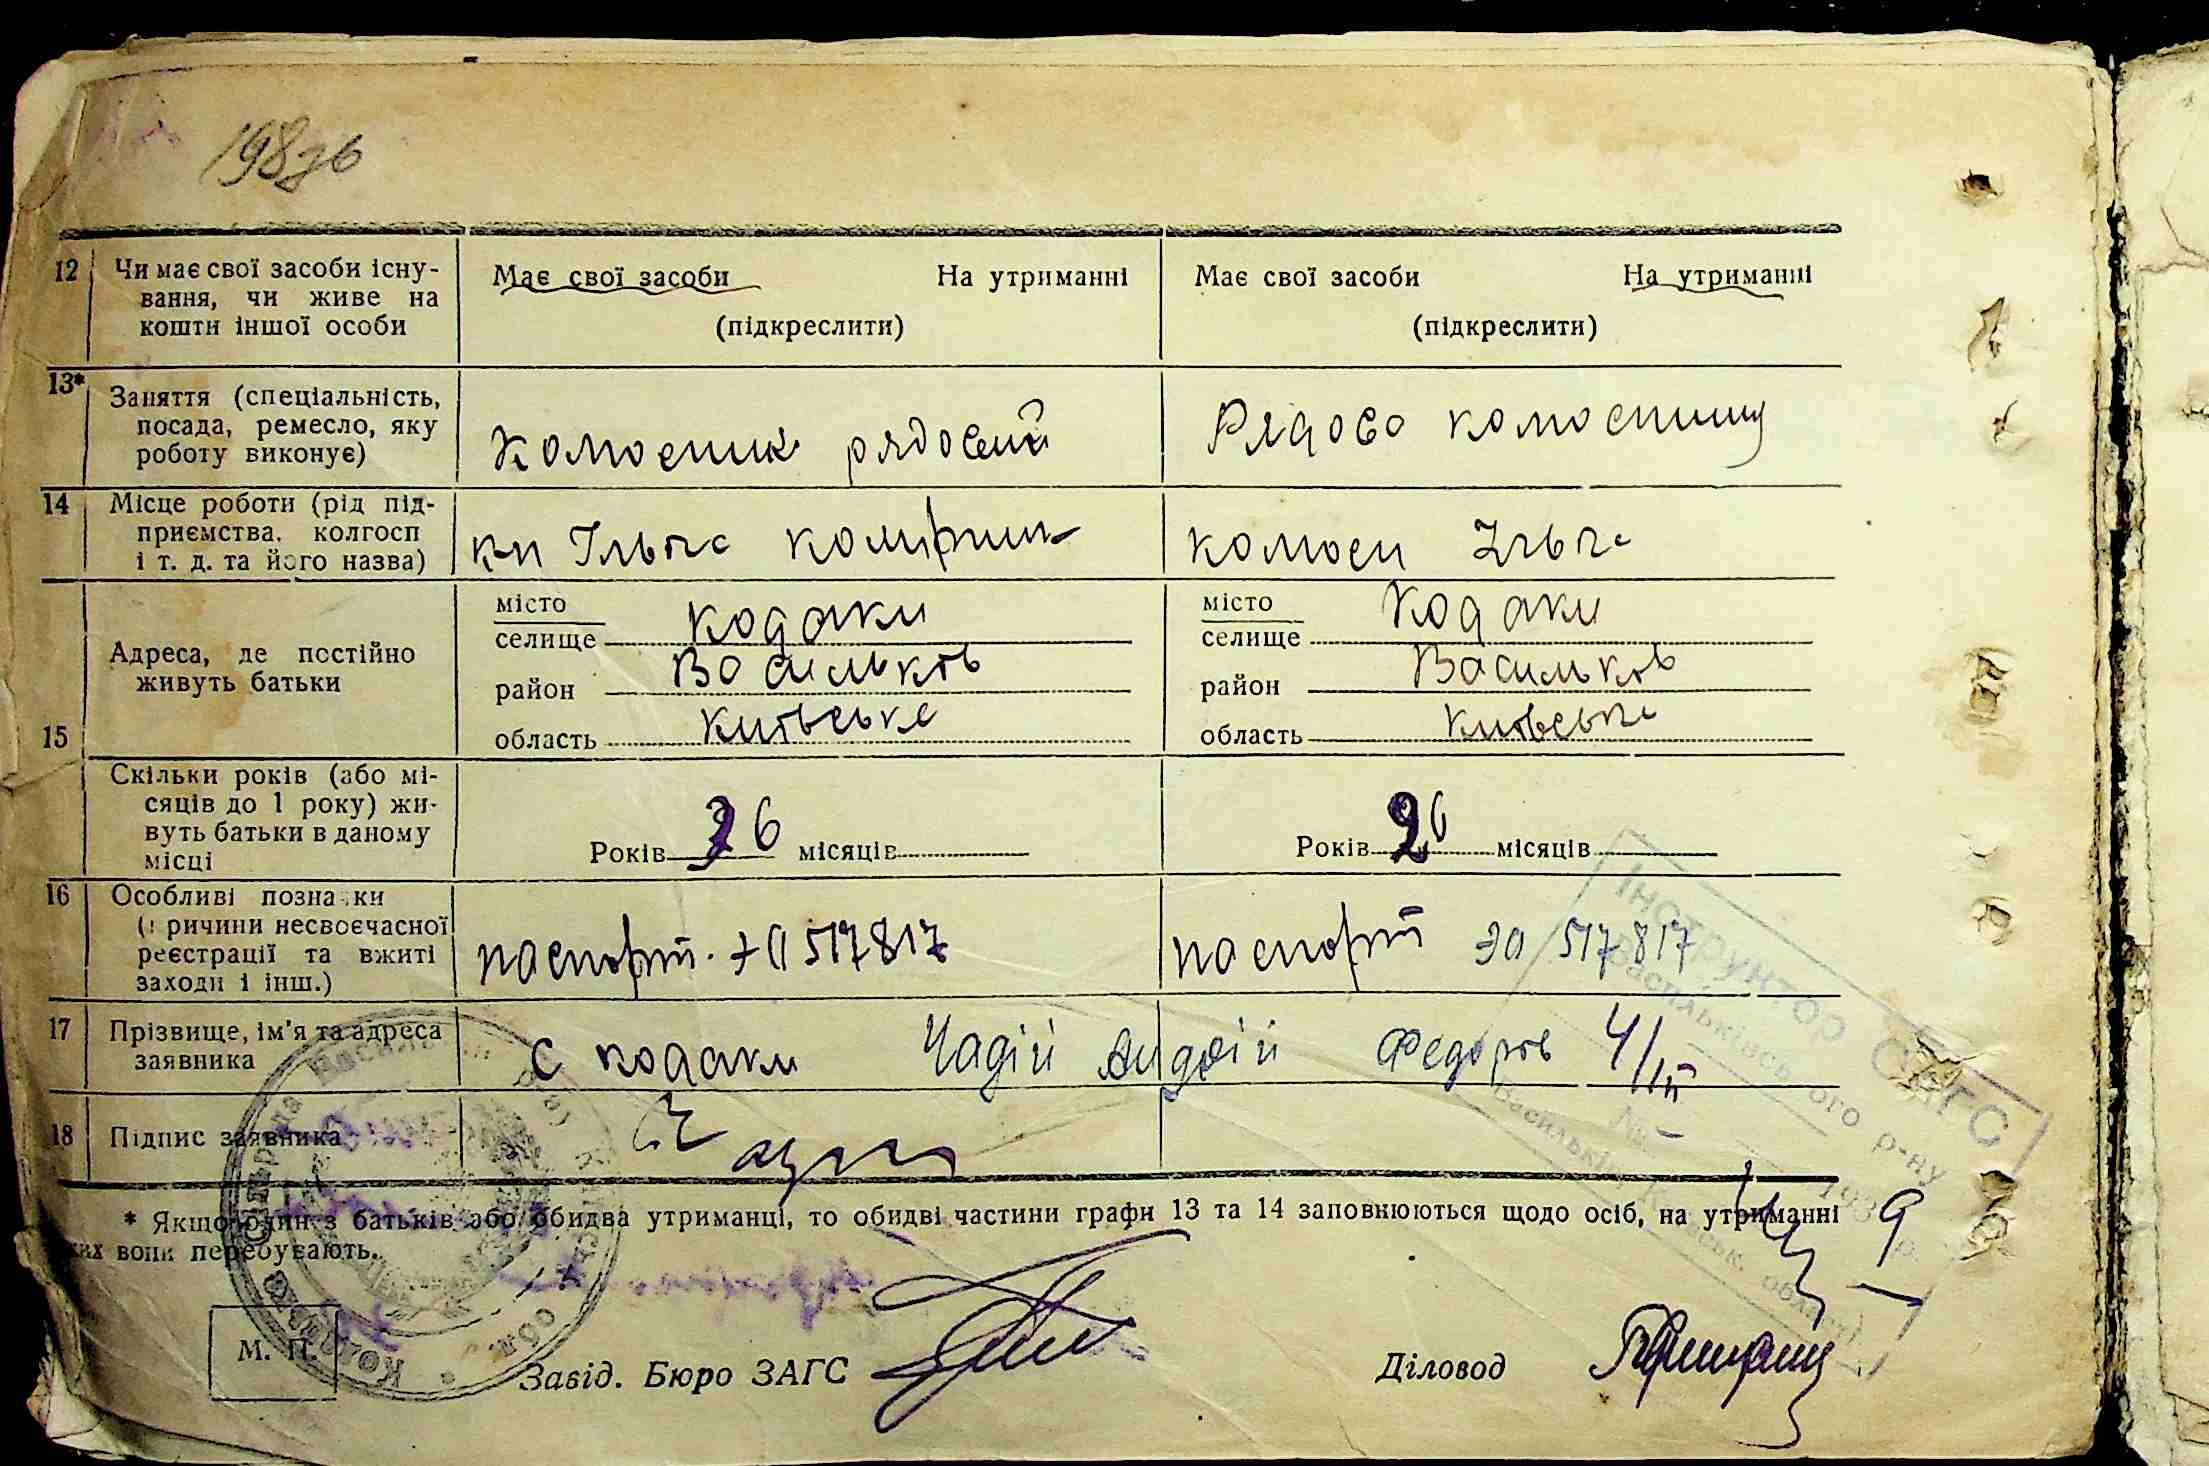 198зв
12 Чи має свої засоби існу-
вання, чи живе на
кошти іншої особи
Має свої засоби На утриманні
(підкреслити)
Має свої засоби На утриманні
(підкреслити)
13* Заняття (спеціальність,
посада, ремесло, яку
роботу виконує)
рядовий
Рядово
14 Місце роботи (рід під-
приємства, колгосп
і т. д. та його назва)
кп Ільіча
Ільіча
15 Адреса, де постійно
живуть батьки
місто
селище Кодаки
район Васильків
область Київська
місто
селище Кодаки
район Васильків
область Київська
Скільки років (або мі-
сяців до 1 року) жи-
вуть батьки в даному
місці
Років 36 місяців
Років 26 місяців
16 Особливі познаки
(причини несвоєчасної
реєстрації та вжиті
заходи і інш.)
паспорт 517817
паспорт ЭО 517817
17 Прізвище, ім'я та адреса
заявника
с кодаки Чадій Андрій Федоров 4/III
18 Підпис заявника
* Якщо один з батьків або обидва утриманці, то обидві частини графи 13 та 14 заповнюються щодо осіб, на утриманні
яких вони перебувають.
М. П.
Завід. Бюро ЗАГС
Діловод
Інструктор ЗАГС
Васильківського р-ну